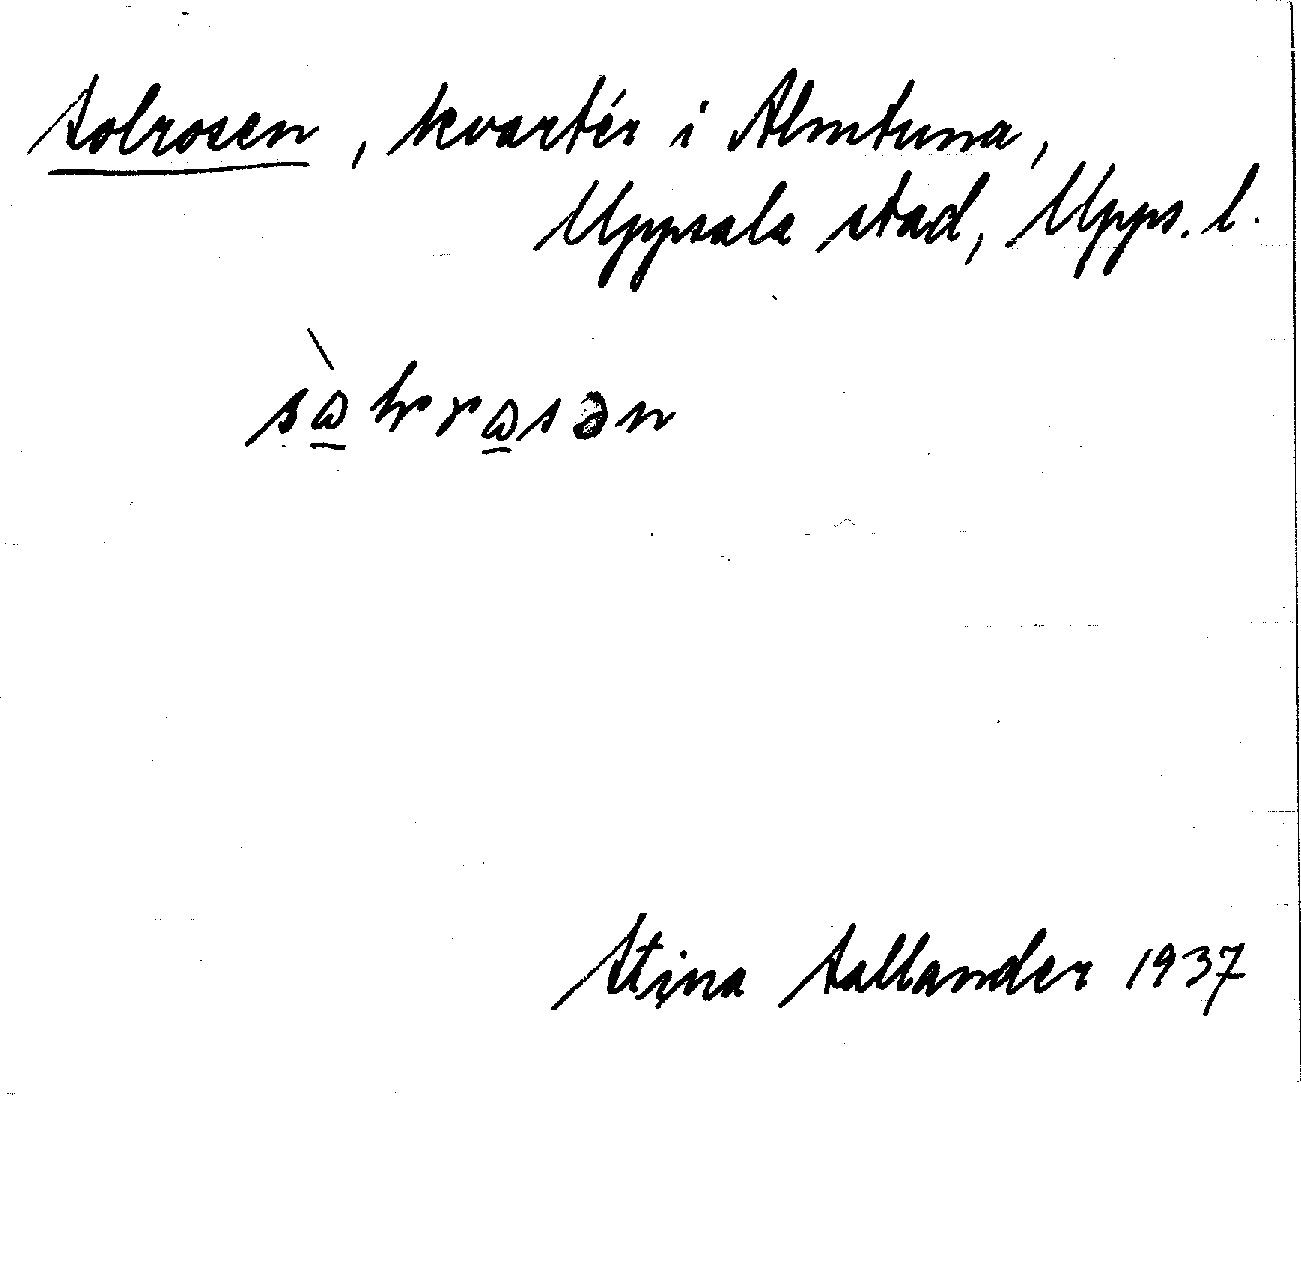 Solrosen, kvartér i Almtuna,
Uppsala stad, Upps. l.
Stina Sallander 1937